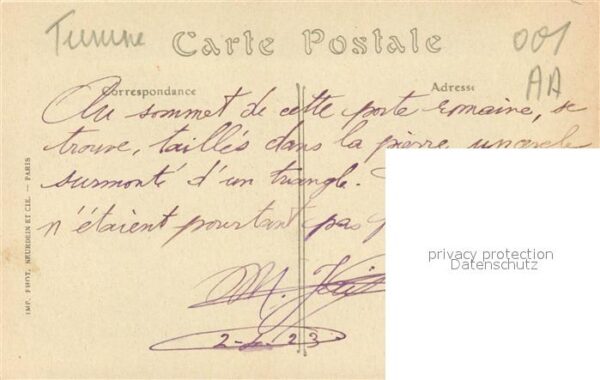 Tunisie
Carte Postale
001
AA
Correspondance
Adresse
Au sommet de cette porte romaine, se
trouve, taillés dans la pierre, un cercle
surmonté d'un triangle.
n'étaient pourtant pas
M.
2-23
IMP. PHOT. NEURDEIN ET CIE. — PARIS
privacy protection
Datenschutz